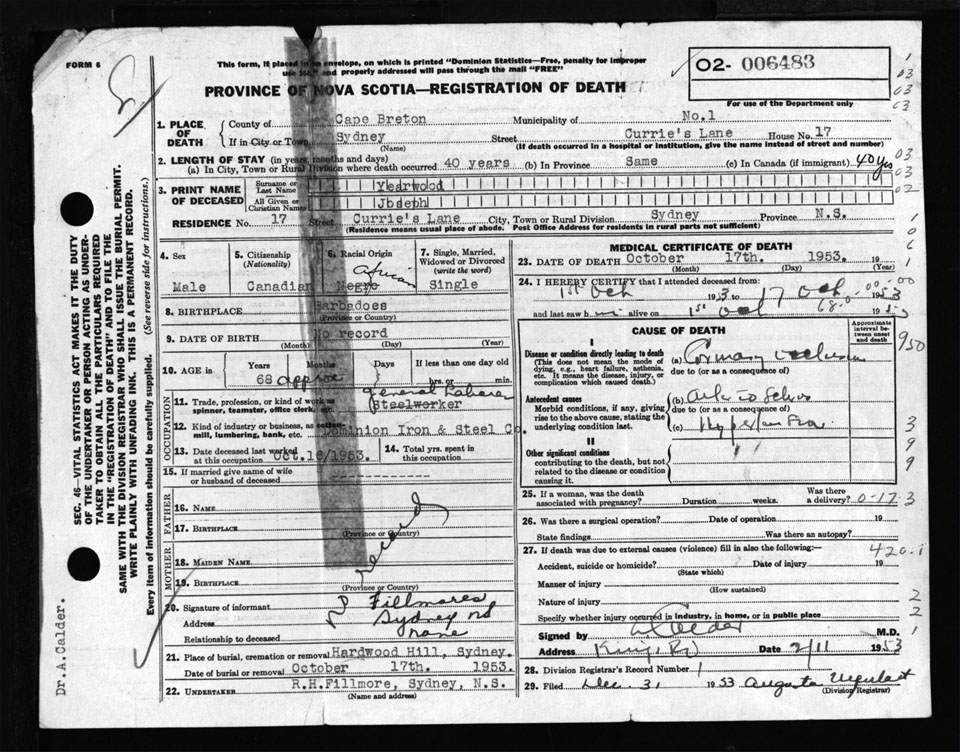 FORM 6
This form, if placed in an envelope, on which is printed "Dominion Statistics—Free, penalty for improper
use $" and properly addressed will pass through the mail "FREE"
O2- 006483
PROVINCE OF NOVA SCOTIA—REGISTRATION OF DEATH
For use of the Department only
1. PLACE OF DEATH
County of Cape Breton Municipality of No.1
If in City or Town Sydney Street Currie's Lane House No. 17
(Name) (If death occurred in a hospital or institution, give the name instead of street and number)
2. LENGTH OF STAY (in years, months and days)
(a) In City, Town or Rural Division where death occurred 40 years (b) In Province Same (c) In Canada (if immigrant) 40 yrs
3. PRINT NAME OF DECEASED
Surname or Last Name Yearwood
All Given or Christian Names Jbseph
RESIDENCE No. 17 Street Currie's Lane City, Town or Rural Division Sydney Province N.S.
(Residence means usual place of abode. Post Office Address for residents in rural parts not sufficient)
4. Sex
Male
5. Citizenship
(Nationality)
Canadian
6. Racial Origin
African
Negro
7. Single, Married,
Widowed or Divorced
(write the word)
Single
8. BIRTHPLACE Barbadoes
(Province or Country)
9. DATE OF BIRTH No record
(Month) (Day) (Year)
10. AGE in
Years Months Days If less than one day old
68 approx hrs. or min.
OCCUPATION
11. Trade, profession, or kind of work as
spinner, teamster, office clerk, etc.
General Laborer
Steelworker
12. Kind of industry or business, as
mill, lumbering, bank, etc. Dominion Iron & Steel Co.
13. Date deceased last worked
at this occupation Oct.16/1953.
14. Total yrs. spent in
this occupation
15. If married give name of wife
or husband of deceased
FATHER
16. NAME
17. BIRTHPLACE
(Province or Country)
MOTHER
18. MAIDEN NAME
19. BIRTHPLACE
(Province or Country)
record
20. Signature of informant Fillmores
Address Sydney nd
Relationship to deceased none
21. Place of burial, cremation or removal Hardwood Hill, Sydney.
Date of burial or removal October 17th. 1953.
22. UNDERTAKER R.H.Fillmore, Sydney, N.S.
(Name and address)
MEDICAL CERTIFICATE OF DEATH
23. DATE OF DEATH October 17th. 1953. 19
(Month) (Day) (Year)
24. I HEREBY CERTIFY that I attended deceased from:
1st Oct 1953 to 17 Oct 1953
and last saw h alive on 1st Oct 19
CAUSE OF DEATH
Approximate
interval between
onset
and death
I
Disease or condition directly leading to death
(This does not mean the mode of
dying, e.g., heart failure, asthenia,
etc. It means the disease, injury, or
complication which caused death.)
(a) Coronary occlusion
due to (or as a consequence of)
Antecedent causes
Morbid conditions, if any, giving
rise to the above cause, stating the
underlying condition last.
(b)
due to (or as a consequence of)
(c)
II
Other significant conditions
contributing to the death, but not
related to the disease or condition
causing it.
25. If a woman, was the death
associated with pregnancy? Duration weeks. Was there
a delivery? 0-17-3
26. Was there a surgical operation? Date of operation 19
State findings Was there an autopsy?
27. If death was due to external causes (violence) fill in also the following:— 420.1
Accident, suicide or homicide? Date of injury 19
(State which)
Manner of injury
(How sustained)
Nature of injury
Specify whether injury occurred in industry, in home, or in public place
Signed by A Calder M.D.
Address Kings Rd Date 2/11 1953
28. Division Registrar's Record Number 1
29. Filed Dec. 31 1953 Augusta Urquhart
(Division Registrar)
SEC. 46—VITAL STATISTICS ACT MAKES IT THE DUTY
OF THE UNDERTAKER OR PERSON ACTING AS UNDER-
TAKER TO OBTAIN ALL THE PARTICULARS REQUIRED
IN THE "REGISTRATION OF DEATH" AND TO FILE THE
SAME WITH THE DIVISION REGISTRAR WHO SHALL ISSUE THE BURIAL PERMIT.
WRITE PLAINLY WITH UNFADING INK. THIS IS A PERMANENT RECORD.
Every item of information should be carefully supplied. (See reverse side for instructions.)
Dr.A.Calder.
950